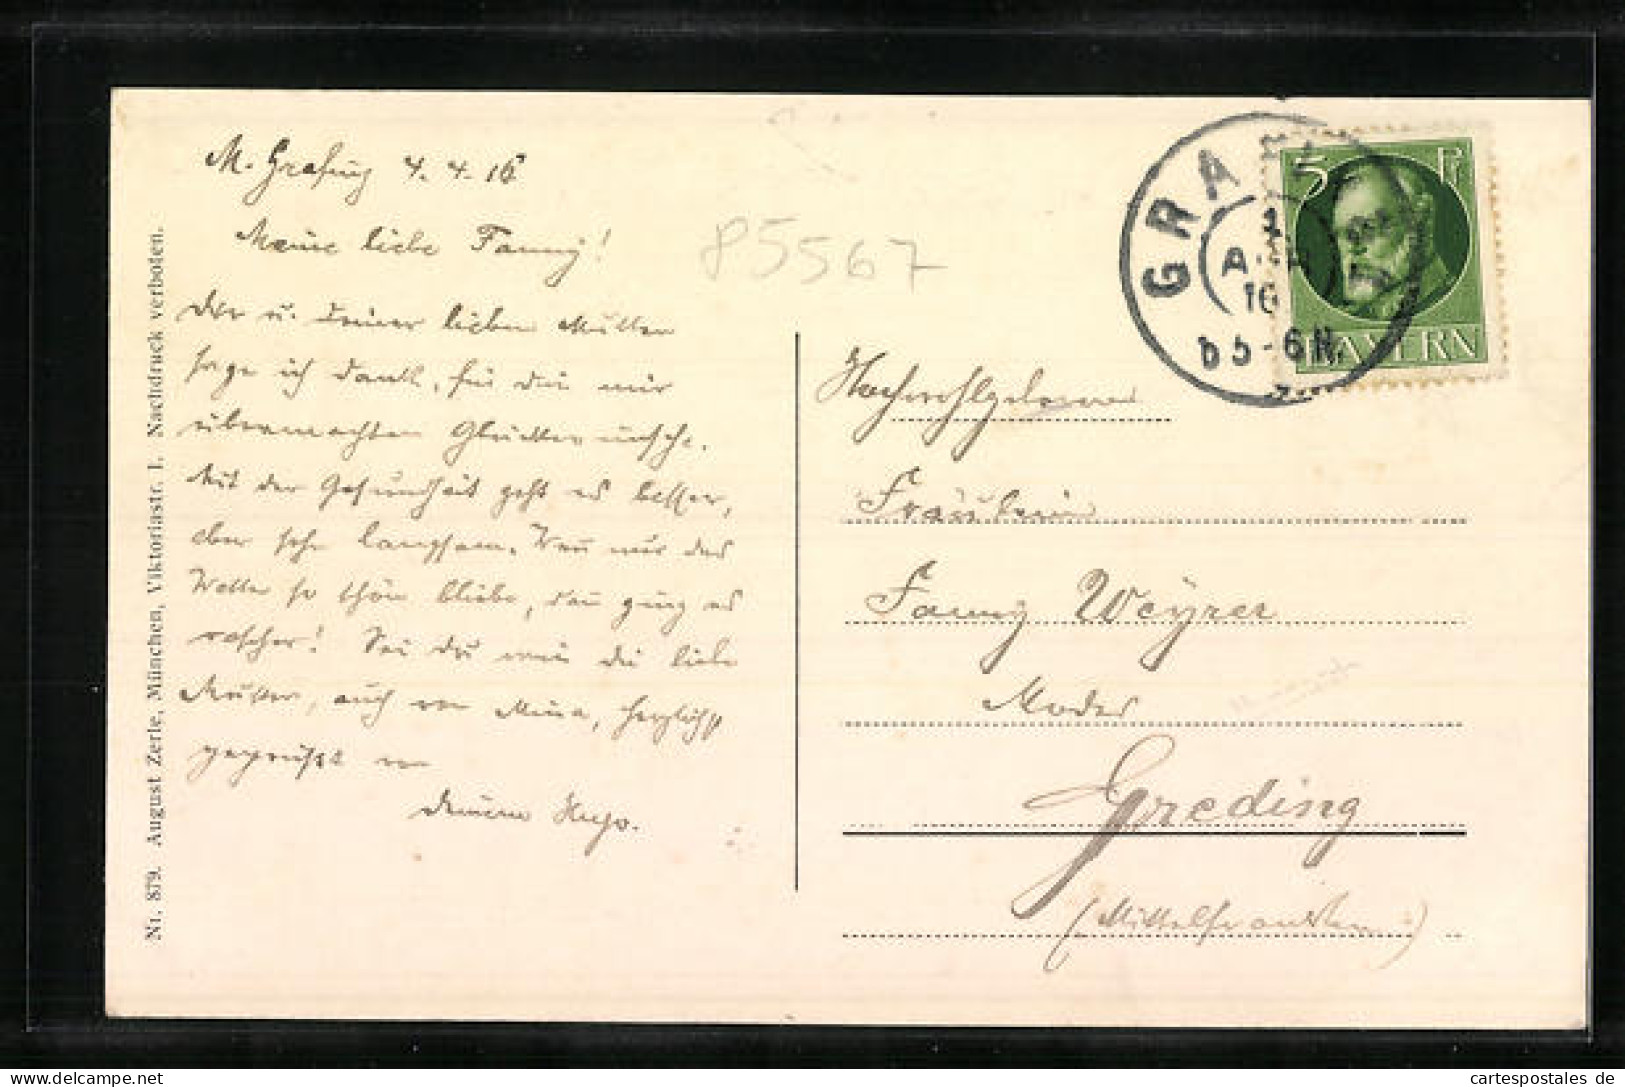 M. Grafing 4. 4. 16
Meine liebe Fanny!
Dir u. Deiner lieben Mutter
sage ich Dank, für die mir
übermachten Glückwünsche.
Mit der Gesundheit geht es besser,
aber sehr langsam. Wenn nur das
Wetter so schön bliebe, dann ging es
rascher! Sei Du wie die liebe
Mutter, auch von Mina, herzlichst
gegrüßt von
Deinem Hugo.
85567
Nr. 879. August Zerle, München, Viktoriastr. 1. Nachdruck verboten.
GRAF
APR
16
b 5-6 N.
5 Pf
BAYERN
Hochwohlgeboren
Fräulein
Fanny Weyrer
Modes
Greding
(Mittelfranken)
NUR
cartespostales de